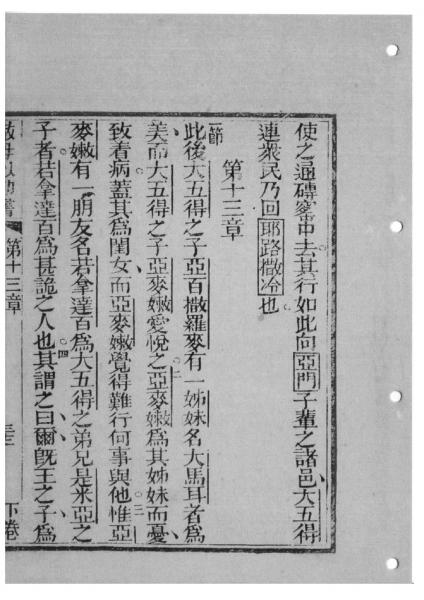 使之過磚窰中去其行如此向亞門子輩之諸邑大五得
連衆民乃回耶路撒冷也
第十三章
一節
此後大五得之子亞百撒羅麥有一姊妹名大馬耳者爲
美而大五得之子亞麥嫩愛悅之亞麥嫩爲其姊妹而憂
二
致着病蓋其爲閨女而亞麥嫩覺得難行何事與他惟亞
三
麥嫩有一朋友名若拿達百爲大五得之弟兄是米亞之
子者若拿達百爲甚詭之人也其謂之曰爾旣王之子爲
四
第十三章
下卷